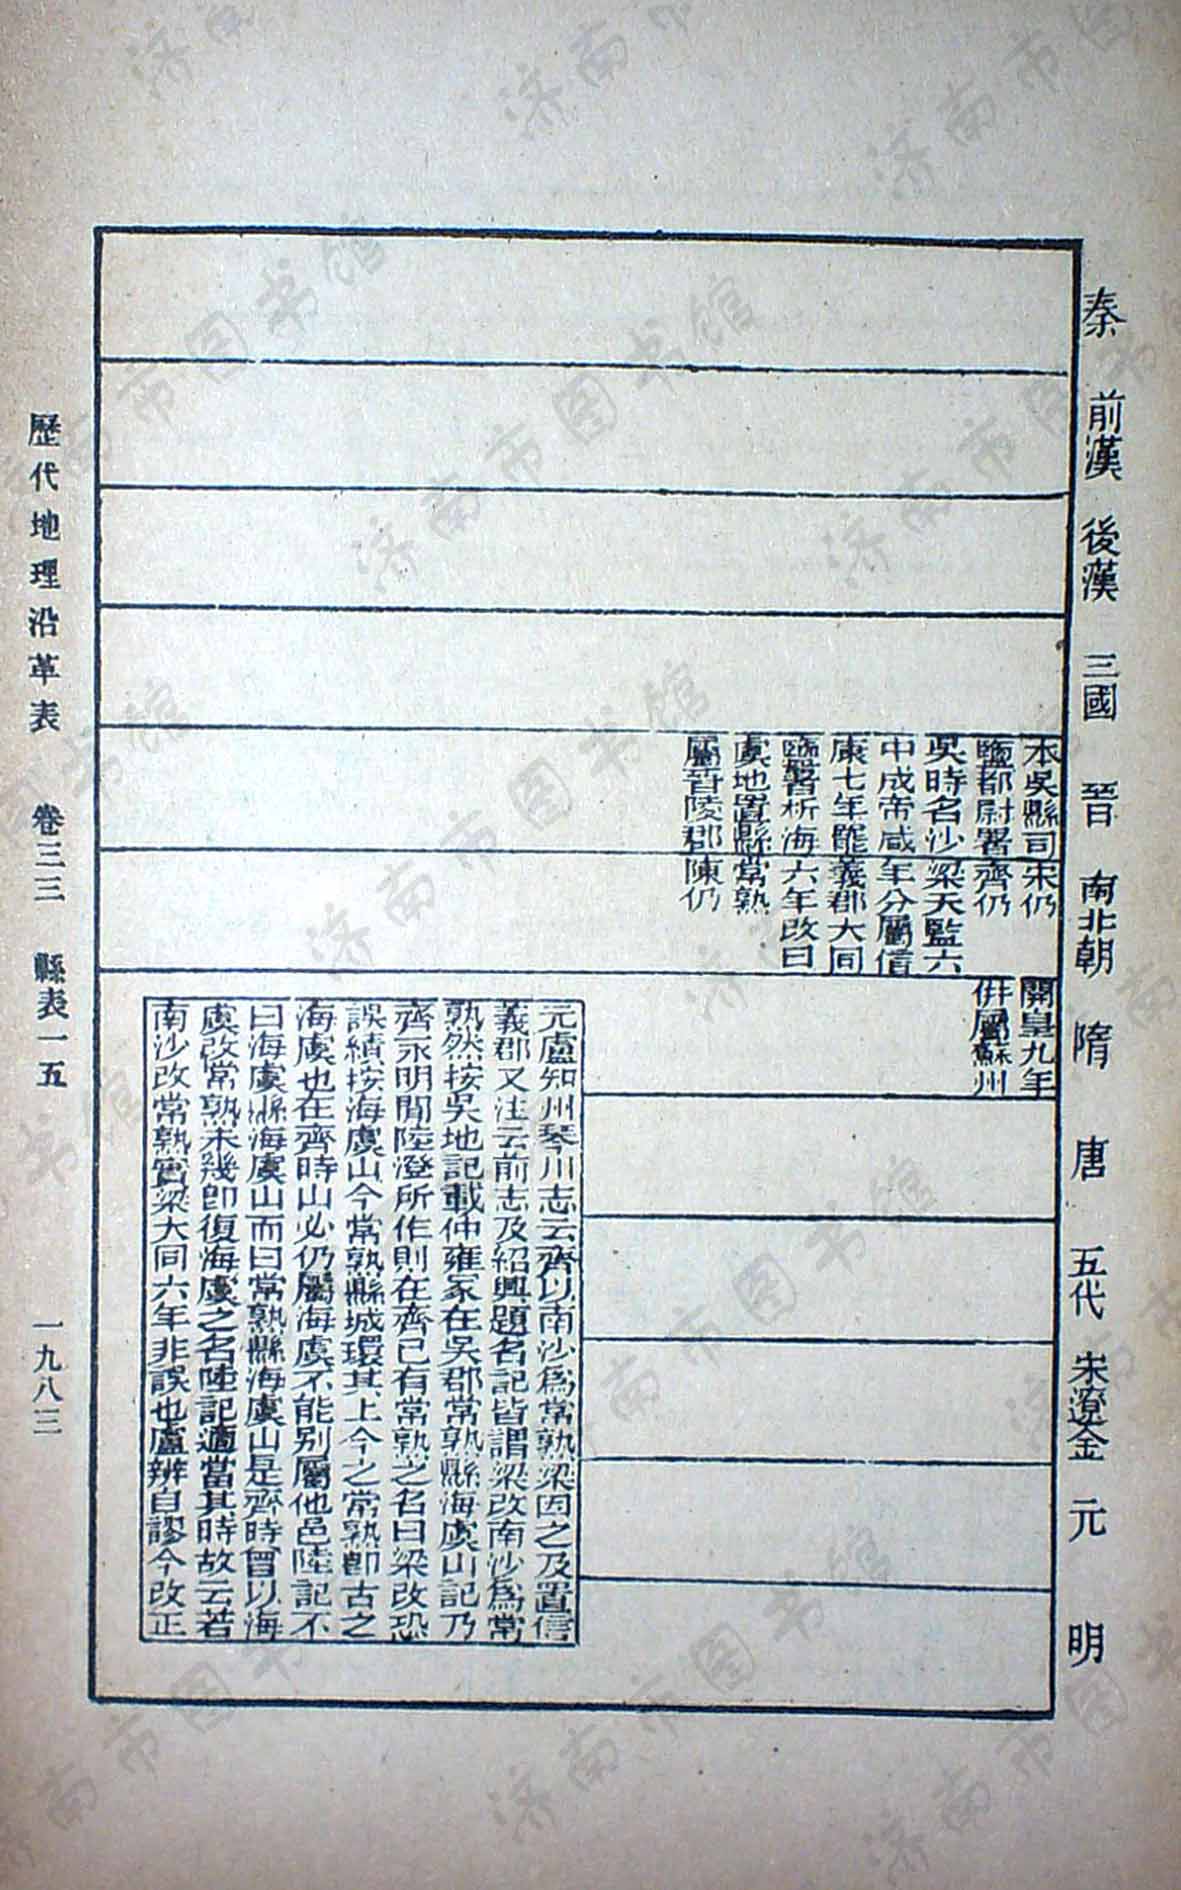 秦
前漢
後漢
三國
晉
南北朝
隋
唐
五代
宋遼金
元
明
本吳縣司
鹽都尉署
吳時名沙
中成帝咸
康七年罷
鹽署析海
虞地置縣
屬晉陵郡
宋仍
齊仍
梁天監六
年分屬信
義郡大同
六年改曰
常熟
陳仍
開皇九年
併屬蘇州
元盧知州琴川志云齊以南沙爲常熟梁因之及置信
義郡又注云前志及紹興題名記皆謂梁改南沙爲常
熟然按吳地記載仲雍冢在吳郡常熟縣海虞山記乃
齊永明間陸澄所作則在齊已有常熟之名曰梁改恐
誤績按海虞山今常熟縣城環其上今之常熟卽古之
海虞也在齊時山必仍屬海虞不能别屬他邑陸記不
曰海虞縣海虞山而曰常熟縣海虞山是齊時曾以海
虞改常熟未幾卽復海虞之名陸記適當其時故云若
南沙改常熟實梁大同六年非誤也盧辨自謬今改正
歷代地理沿革表 卷三三 縣表一五 一九八三
济南市图书馆